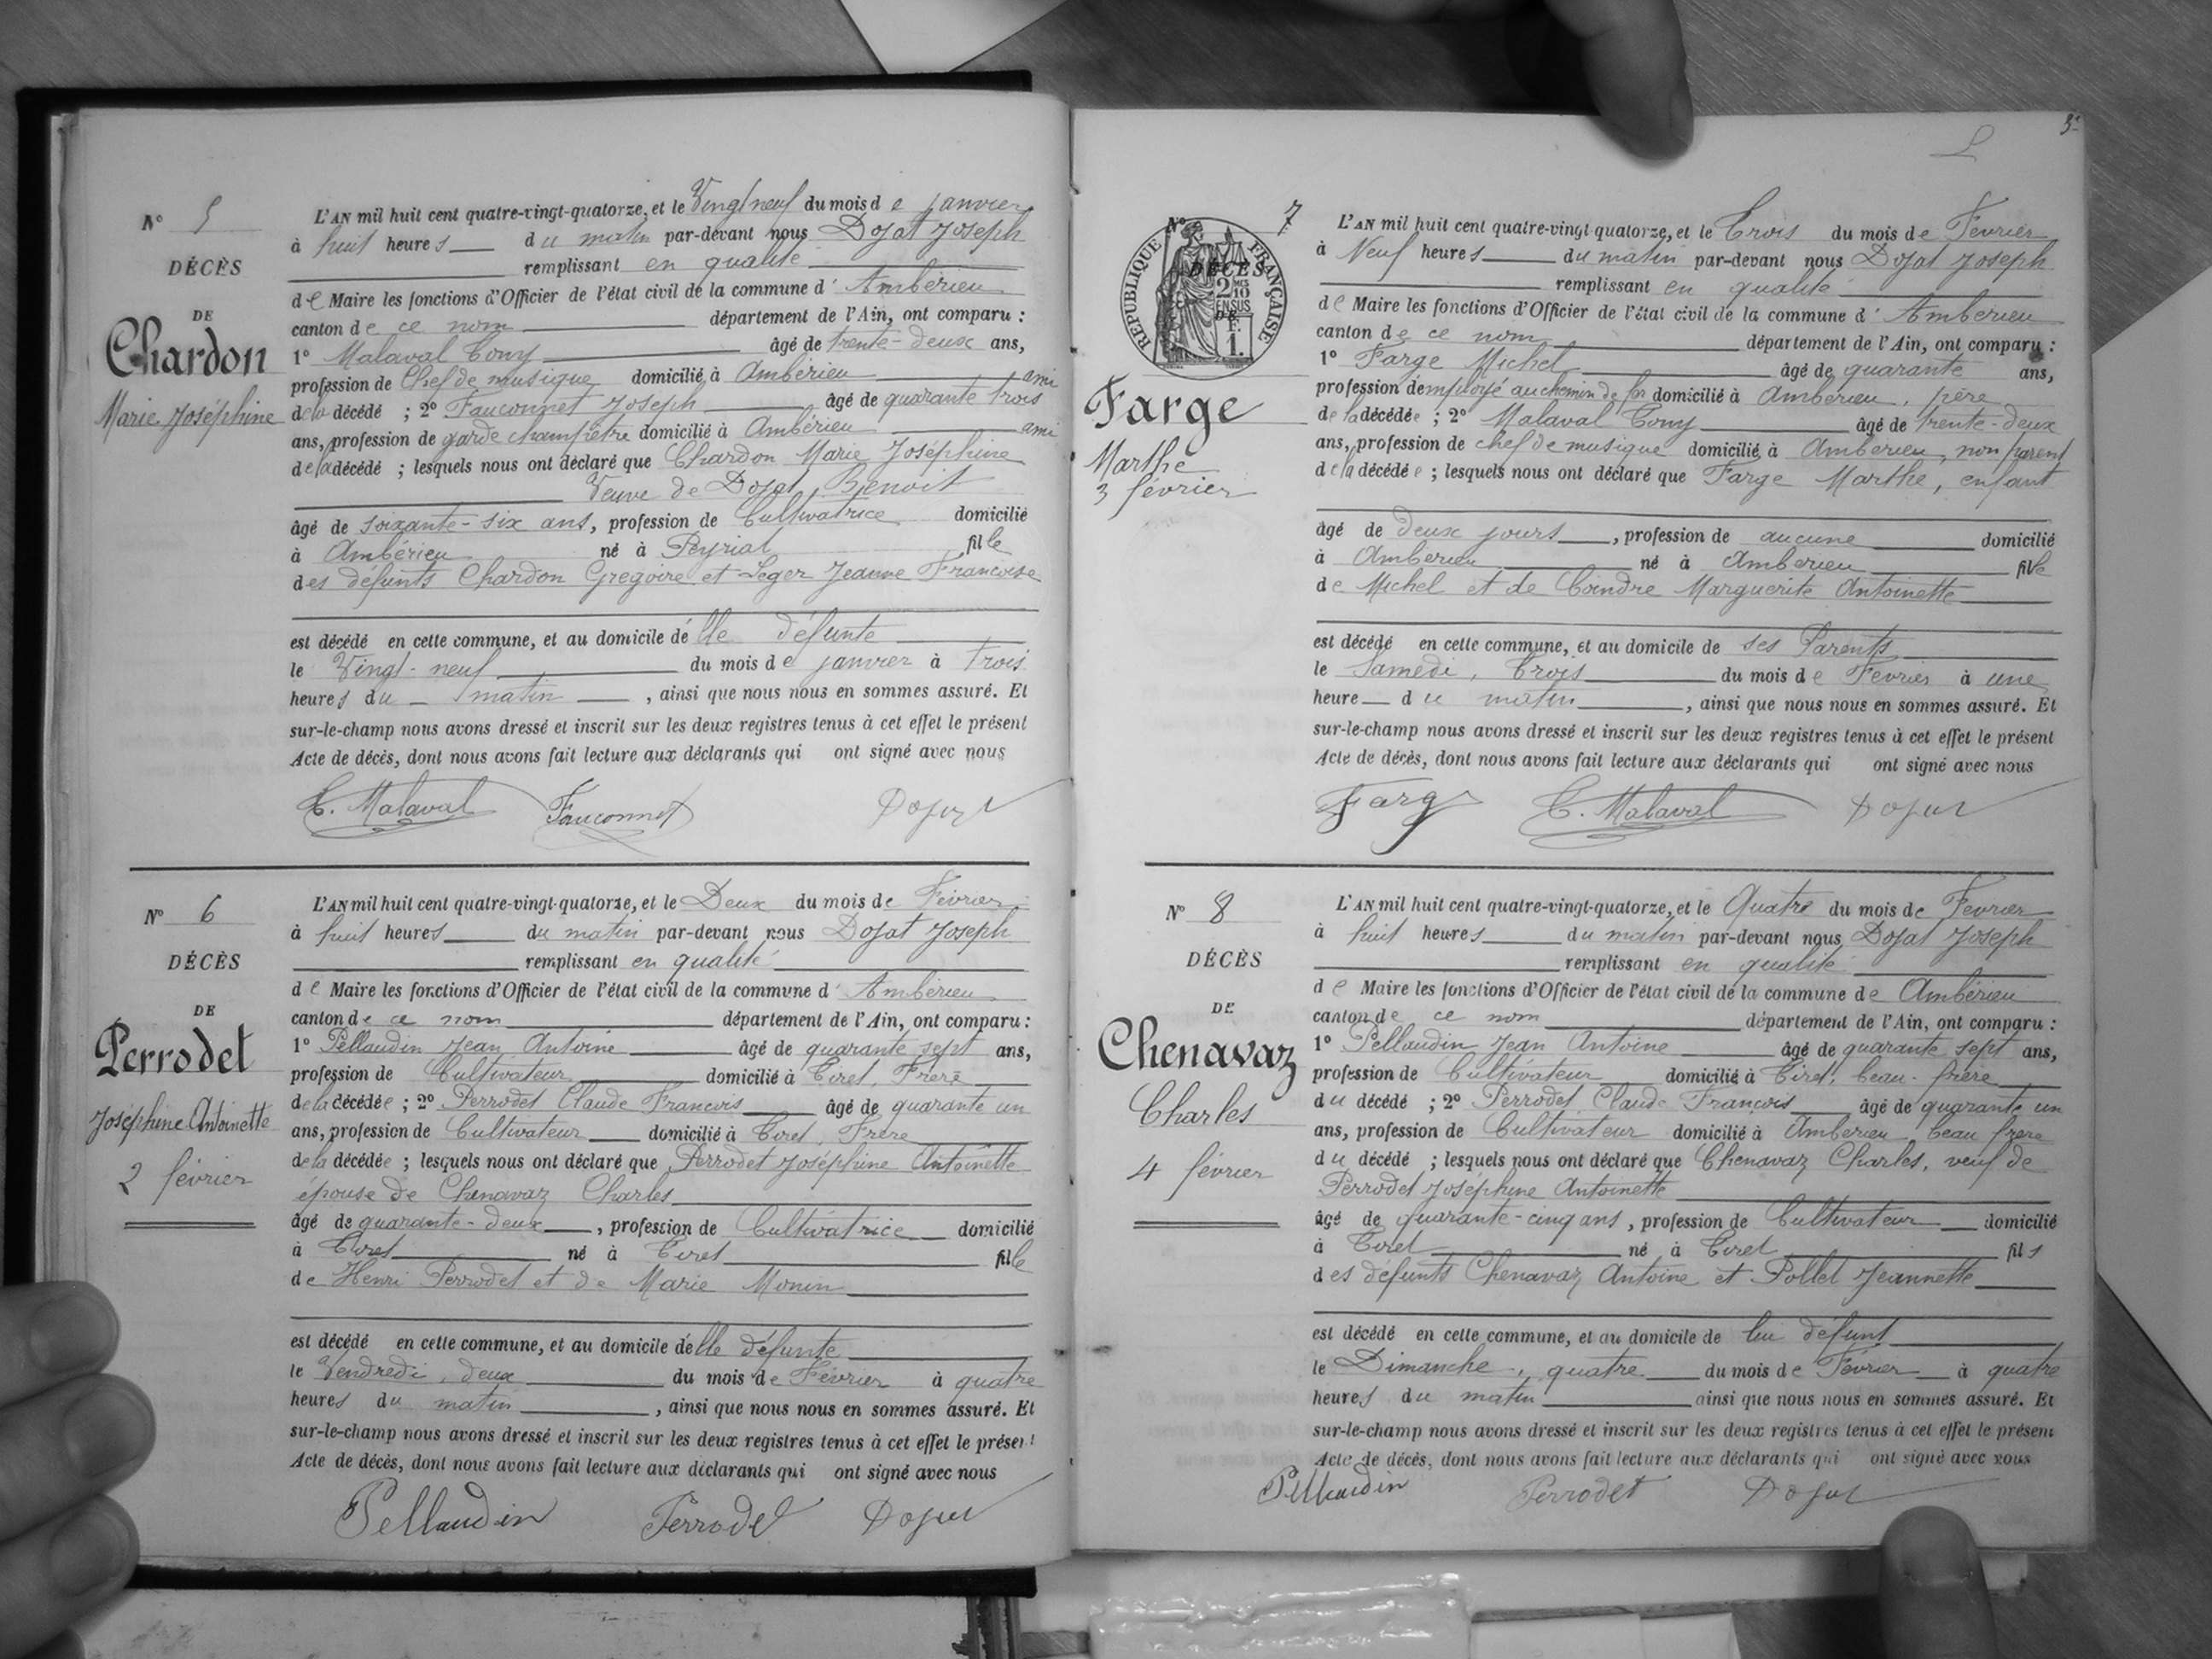 N° 5
DÉCÈS
DE
Chardon
Marie Joséphine
L'AN mil huit cent quatre-vingt-quatorze, et le Vingt neuf du mois de janvier
à huit heures du matin par-devant nous Dojat Joseph
remplissant en qualité
de Maire les fonctions d'Officier de l'état civil de la commune d'Ambérieu
canton de ce nom département de l'Ain, ont comparu :
1° Malaval Tony âgé de trente-deux ans,
profession de Chef de musique domicilié à Ambérieu ami
de la décédé ; 2° Fauconnet Joseph âgé de quarante trois
ans, profession de garde champêtre domicilié à Ambérieu ami
de la décédé ; lesquels nous ont déclaré que Chardon Marie Joséphine
Veuve de Dojat Benoit
âgé de soixante-six ans, profession de Cultivatrice domicilié
à Ambérieu né à Peyriat fille
des défunts Chardon Gregoire et Leger Jeanne Francoise
est décédé en cette commune, et au domicile d'elle défunte
le Vingt-neuf du mois de janvier à trois
heures du matin, ainsi que nous nous en sommes assuré. Et
sur-le-champ nous avons dressé et inscrit sur les deux registres tenus à cet effet le présent
Acte de décès, dont nous avons fait lecture aux déclarants qui ont signé avec nous
T. Malaval Fauconnet Dojat
N° 6
DÉCÈS
DE
Perrodet
Joséphine Antoinette
2 février
L'AN mil huit cent quatre-vingt-quatorze, et le Deux du mois de Février
à huit heures du matin par-devant nous Dojat Joseph
remplissant en qualité
de Maire les fonctions d'Officier de l'état civil de la commune d'Ambérieu
canton de ce nom département de l'Ain, ont comparu :
1° Pellaudin Jean Antoine âgé de quarante sept ans,
profession de Cultivateur domicilié à Tiret, Frere
de la décédée ; 2° Perrodet Claude Francois âgé de quarante un
ans, profession de Cultivateur domicilié à Tiret, Frere
de la décédée ; lesquels nous ont déclaré que Perrodet Joséphine Antoinette
épouse de Chenavaz Charles
âgé de quarante-deux, profession de Cultivatrice domicilié
à Tiret né à Tiret fille
de Henri Perrodet et de Marie Monin
est décédé en cette commune, et au domicile d'elle défunte
le Vendredi, deux du mois de Février à quatre
heures du matin, ainsi que nous nous en sommes assuré. Et
sur-le-champ nous avons dressé et inscrit sur les deux registres tenus à cet effet le présent
Acte de décès, dont nous avons fait lecture aux déclarants qui ont signé avec nous
Pellaudin Perrodet Dojat
3
N° 7
RÉPUBLIQUE FRANÇAISE
DÉCÈS
2/10 EN SUS
DE
1 F.
Farge
Marthe
3 février
L'AN mil huit cent quatre-vingt-quatorze, et le Trois du mois de Février
à Neuf heures du matin par-devant nous Dojat Joseph
remplissant en qualité
de Maire les fonctions d'Officier de l'état civil de la commune d'Ambérieu
canton de ce nom département de l'Ain, ont comparu :
1° Farge Michel âgé de quarante ans,
profession d'employé au chemin de fer domicilié à Ambérieu, père
de la décédée ; 2° Malaval Tony âgé de trente-deux
ans, profession de chef de musique domicilié à Ambérieu, non parent
de la décédée ; lesquels nous ont déclaré que Farge Marthe, enfant
âgé de deux jours, profession de aucune domicilié
à Ambérieu né à Ambérieu fille
de Michel et de Coindre Marguerite Antoinette
est décédé en cette commune, et au domicile de ses Parents
le Samedi, Trois du mois de Février à une
heure du matin, ainsi que nous nous en sommes assuré. Et
sur-le-champ nous avons dressé et inscrit sur les deux registres tenus à cet effet le présent
Acte de décès, dont nous avons fait lecture aux déclarants qui ont signé avec nous
Farge T. Malaval Dojat
N° 8
DÉCÈS
DE
Chenavaz
Charles
4 février
L'AN mil huit cent quatre-vingt-quatorze, et le Quatre du mois de Février
à huit heures du matin par-devant nous Dojat Joseph
remplissant en qualité
de Maire les fonctions d'Officier de l'état civil de la commune de Ambérieu
canton de ce nom département de l'Ain, ont comparu :
1° Pellaudin Jean Antoine âgé de quarante sept ans,
profession de Cultivateur domicilié à Tiret, beau-frère
du décédé ; 2° Perrodet Claude François âgé de quarante un
ans, profession de Cultivateur domicilié à Ambérieu, beau frère
du décédé ; lesquels nous ont déclaré que Chenavaz Charles, veuf de
Perrodet Joséphine Antoinette
âgé de quarante-cinq ans, profession de Cultivateur domicilié
à Tiret né à Tiret fils
des défunts Chenavaz Antoine et Pollet Jeannette
est décédé en cette commune, et au domicile de lui défunt
le Dimanche, quatre du mois de Février à quatre
heures du matin ainsi que nous nous en sommes assuré. Et
sur-le-champ nous avons dressé et inscrit sur les deux registres tenus à cet effet le présent
Acte de décès, dont nous avons fait lecture aux déclarants qui ont signé avec nous
Pellaudin Perrodet Dojat